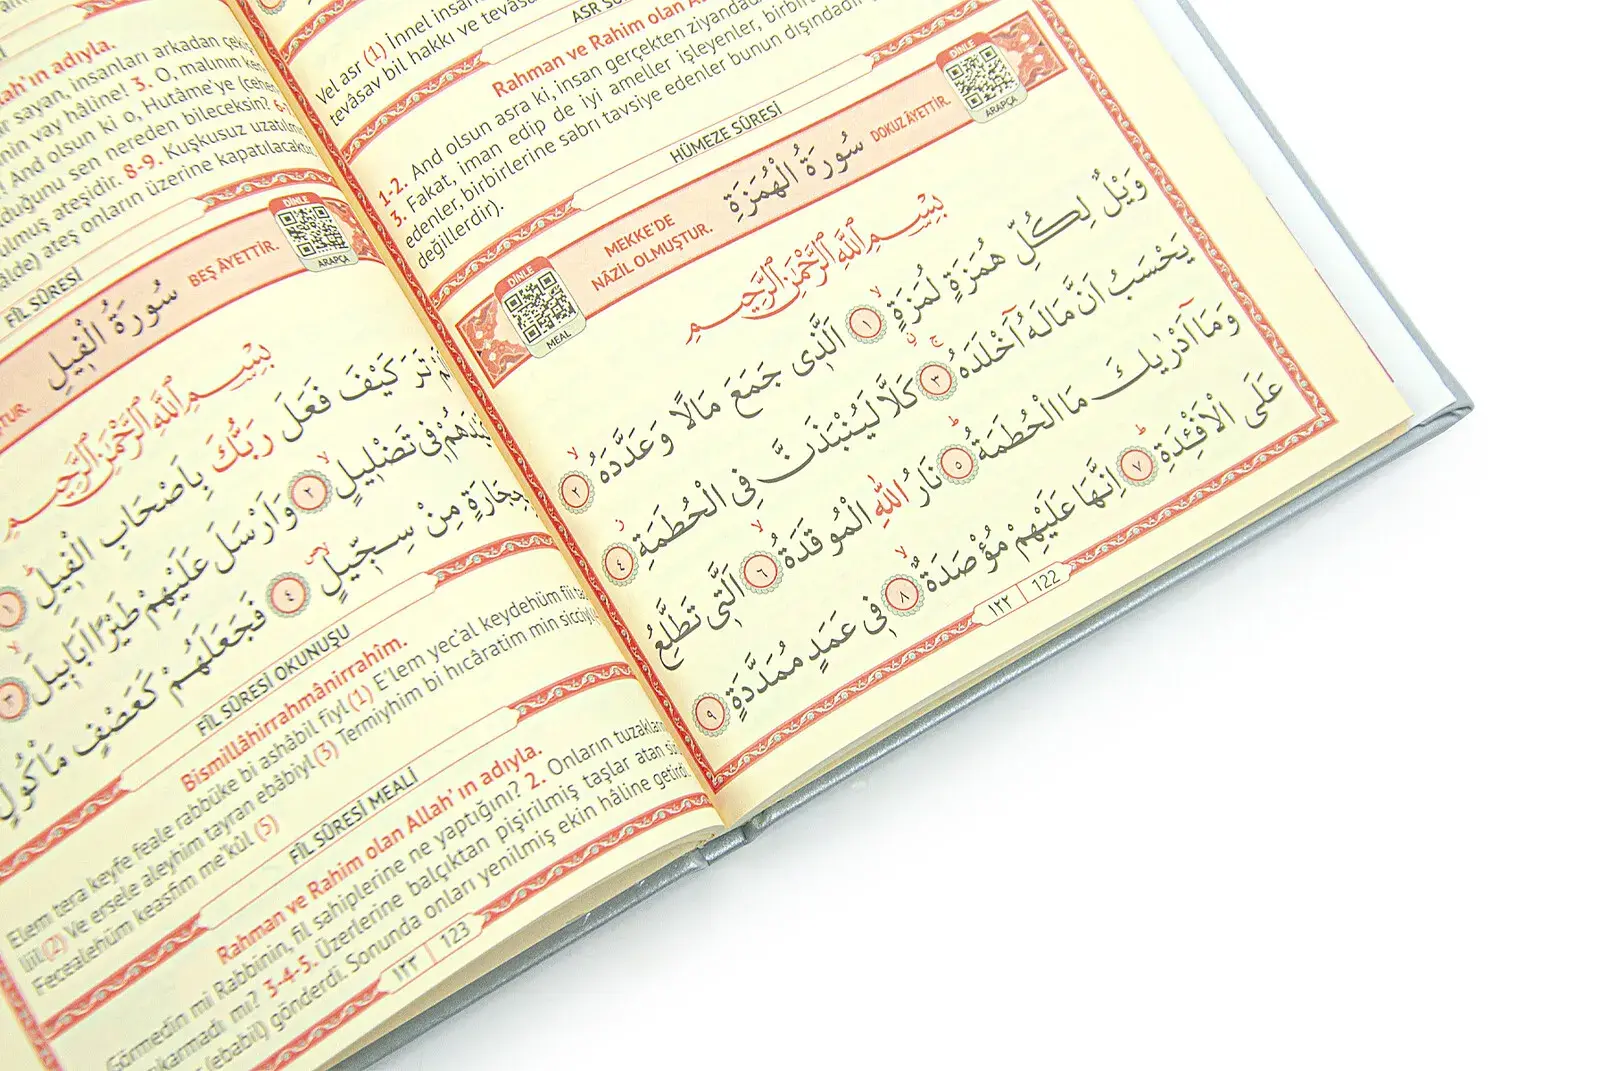 ASR SÛ
Vel asr (1) İnnel insan
tevâsav bil hakkı ve tevâsa
Rahman ve Rahim olan A
1-2. And olsun asra ki, insan gerçekten ziyandadı
3. Fakat, iman edip de iyi ameller işleyenler, birbirler
edenler, birbirlerine sabrı tavsiye edenler bunun dışındadır
değillerdir).
HÜMEZE SÛRESİ
DİNLE
ARAPÇA
DOKUZ ÂYETTİR.
سُورَةُ الْهُمَزَةِ
MEKKE'DE
NÂZİL OLMUŞTUR.
DİNLE
MEAL
بِسْمِ اللّٰهِ الرَّحْمٰنِ الرَّحِيمِ
وَيْلٌ لِكُلِّ هُمَزَةٍ لُمَزَةٍ ١ اَلَّذٖى جَمَعَ مَالًا وَعَدَّدَهُ ٢
يَحْسَبُ اَنَّ مَالَهُٓ اَخْلَدَهُ ٣ كَلَّا لَيُنْبَذَنَّ فِى الْحُطَمَةِ ٤
وَمَٓا اَدْرٰيكَ مَا الْحُطَمَةُ ٥ نَارُ اللّٰهِ الْمُوقَدَةُ ٦ اَلَّتٖى تَطَّلِعُ
عَلَى الْاَفْـِٔدَةِ ٧ اِنَّهَا عَلَيْهِمْ مُؤْصَدَةٌ ٨ فٖى عَمَدٍ مُمَدَّدَةٍ ٩
١٢٢ | 122
ah'ın adıyla.
ar sayan, insanları arkadan çekiş
nin vay hâline! 3. O, malının ken
! And olsun ki o, Hutâme'ye (cehe
duğunu sen nereden bileceksin? 6-
ulmuş ateşidir. 8-9. Kuşkusuz uzatılmı
âlde) ateş onların üzerine kapatılacaktı
FİL SÛRESİ
DİNLE
ARAPÇA
BEŞ ÂYETTİR.
سُورَةُ الْفٖيلِ
ŞTUR.
بِسْمِ اللّٰهِ الرَّحْمٰنِ الرَّحِيمِ
تَرَ كَيْفَ فَعَلَ رَبُّكَ بِاَصْحَابِ الْفٖيلِ ١
فٖى تَضْلٖيلٍ ٢ وَاَرْسَلَ عَلَيْهِمْ طَيْرًا اَبَابٖيلَ ٣
بِحِجَارَةٍ مِنْ سِجّٖيلٍ ٤ فَجَعَلَهُمْ كَعَصْفٍ مَأْكُولٍ
FİL SÛRESİ OKUNUŞU
Bismillâhirrahmânirrahîm.
Elem tera keyfe feale rabbüke bi ashâbil fiyl (1) E'lem yec'al keydehüm fii ta
liil (2) Ve ersele aleyhim tayran ebâbiyl (3) Termiyhim bi hıcâratim min sicciyl
Fecealehüm keasfim me'kûl (5)
FİL SÛRESİ MEALİ
Rahman ve Rahim olan Allah'ın adıyla.
Görmedin mi Rabbinin, fil sahiplerine ne yaptığını? 2. Onların tuzakları
çıkarmadı mı? 3-4-5. Üzerlerine balçıktan pişirilmiş taşlar atan sü
r (ebabil) gönderdi. Sonunda onları yenilmiş ekin hâline getirdi
١٢٣ | 123